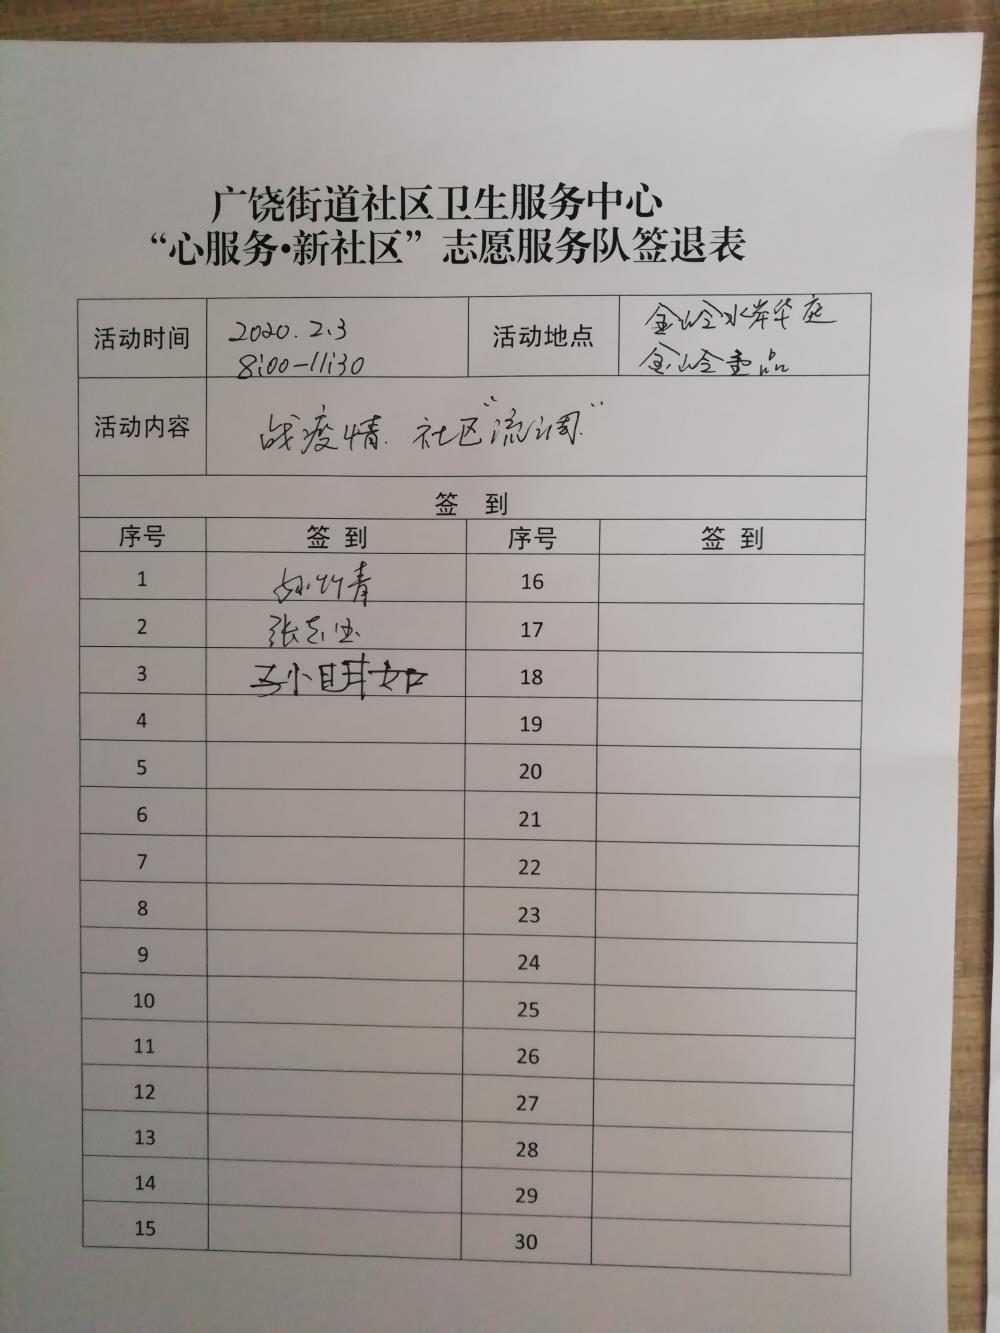 广饶街道社区卫生服务中心
“心服务·新社区”志愿服务队签退表
活动时间 2020.2.3 8:00-11:30 活动地点 金岭水岸华庭 金岭壹品
活动内容 战疫情 社区“流调”
签 到
序号 签 到 序号 签 到
1 孙竹青 16
2 张志 17
3 孙 如 18
4 19
5 20
6 21
7 22
8 23
9 24
10 25
11 26
12 27
13 28
14 29
15 30